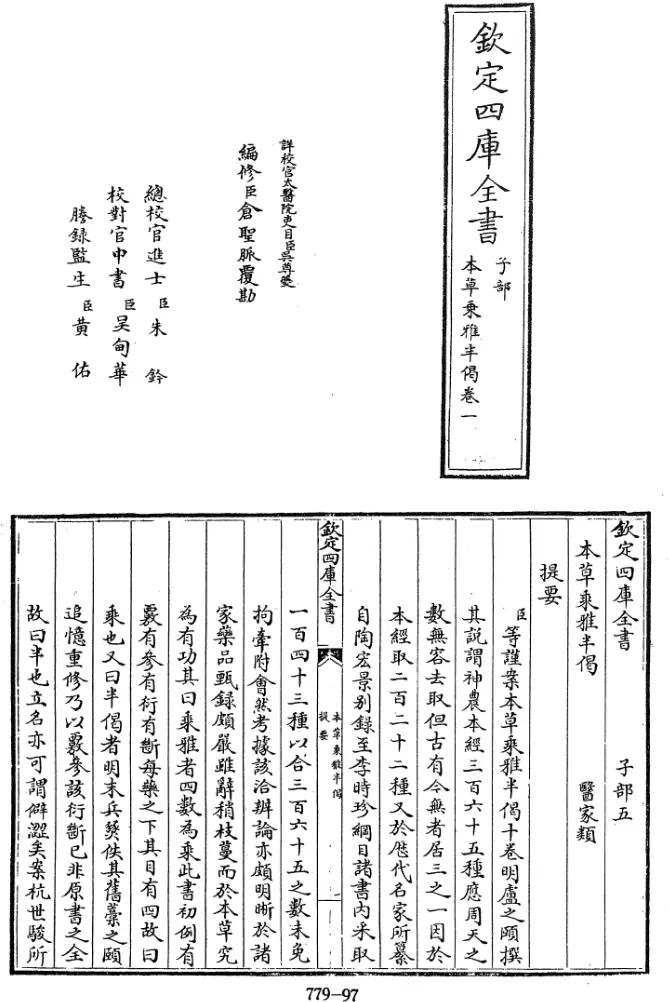 欽定四庫全書
子部
本草乘雅半偈卷一
詳校官太醫院吏目臣吳尊夔
編修臣倉聖脈覆勘
總校官進士臣朱鈐
校對官中書臣吳甸華
謄錄監生臣黃佑
欽定四庫全書 子部五
本草乘雅半偈 醫家類
提要
臣等謹案本草乘雅半偈十卷明盧之頤撰
其說謂神農本經三百六十五種應周天之
數無容去取但古有今無者居三之一因於
本經取二百二十二種又於歷代名家所纂
自陶宏景別錄至李時珍綱目諸書內采取
欽定四庫全書
本草乘雅半偈
提要
一
一百四十三種以合三百六十五之數未免
拘牽附會然考據該洽辨論亦頗明晰於諸
家藥品甄錄頗嚴雖辭稍枝蔓而於本草究
為有功其曰乘雅者四數為乘此書初例有
覈有參有衍有斷每藥之下其目有四故曰
乘也又曰半偈者明末兵燹佚其舊藁之頤
追憶重修乃以覈參該衍斷已非原書之全
故曰半也立名亦可謂僻澀矣案杭世駿所
779-97